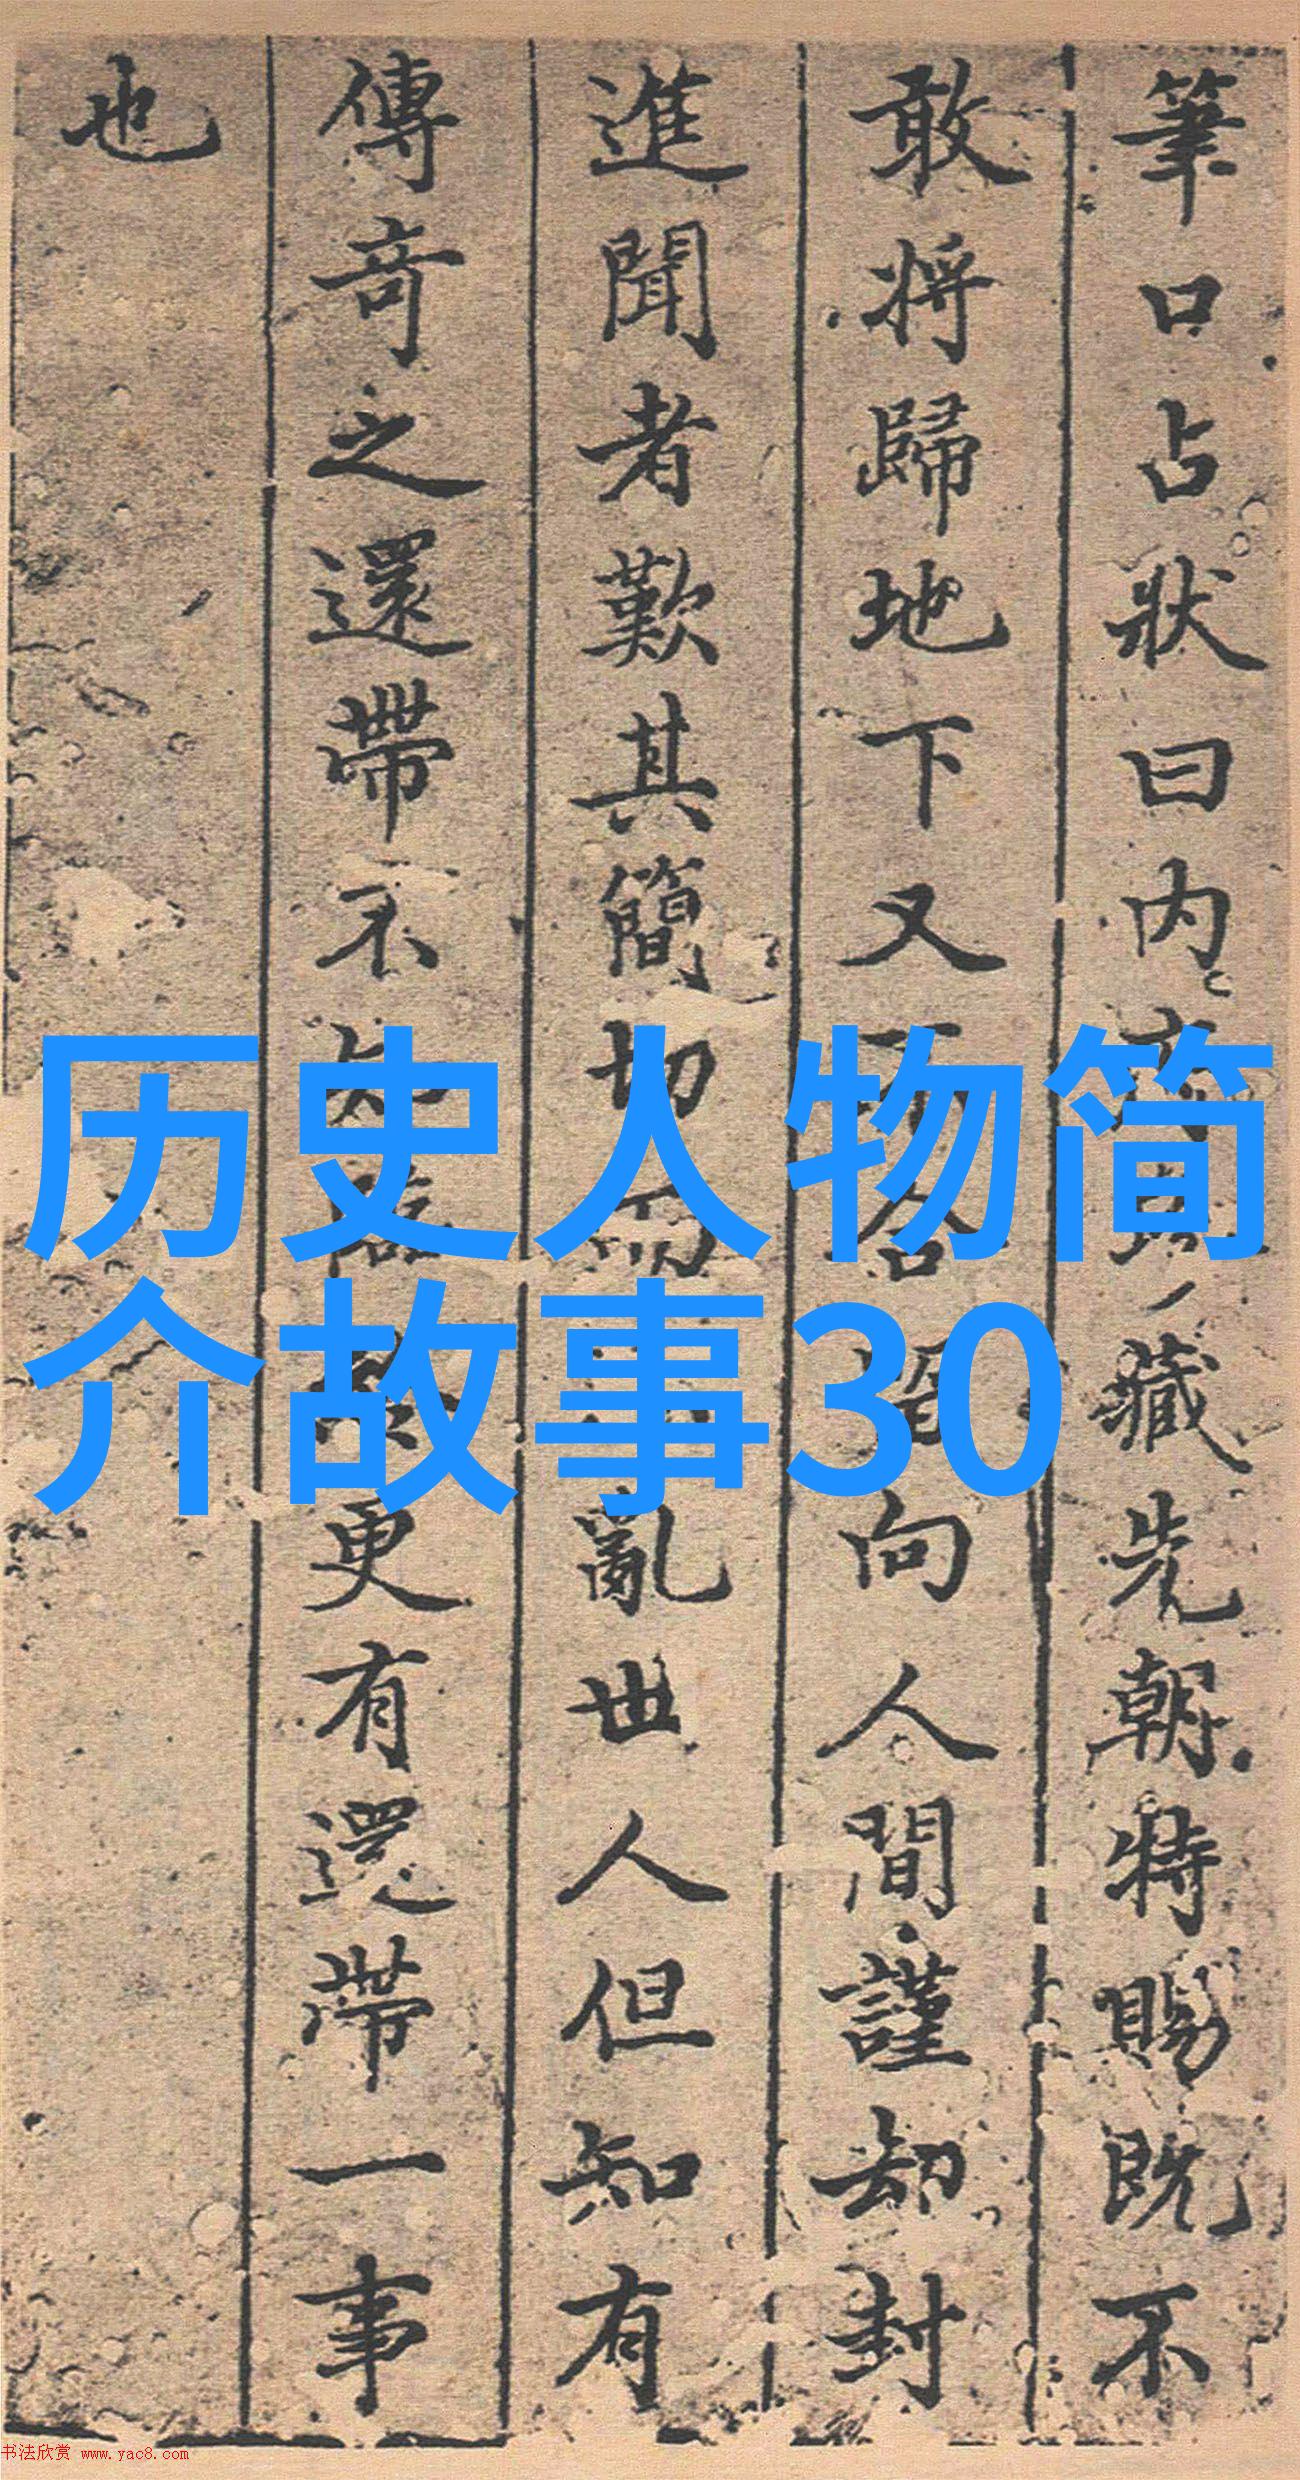 筆口占狀曰内府
藏先朝特賜既不
敢將歸地下又不合
留向人間謹却封
進聞者歎其簡切
亂世人但知有
傳奇之還帶不知
更有還帶一事
也
历史人物简
介故事30
书法欣赏 www.yac8.com